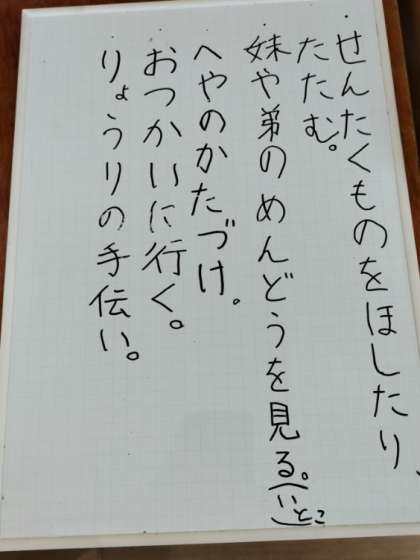 ・せんたくものをほしたり、
たたむ。
・妹や弟のめんどうを見る。(いとこ)
・へやのかたづけ。
・おつかいに行く。
・りょうりの手伝い。